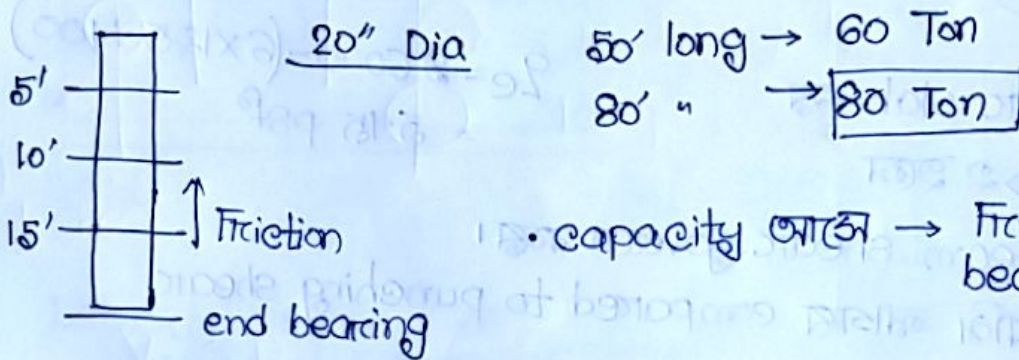 20" Dia
50' long → 60 Ton
80' " → 80 Ton
5'
10'
15'
Friction
end bearing
• capacity আসে →